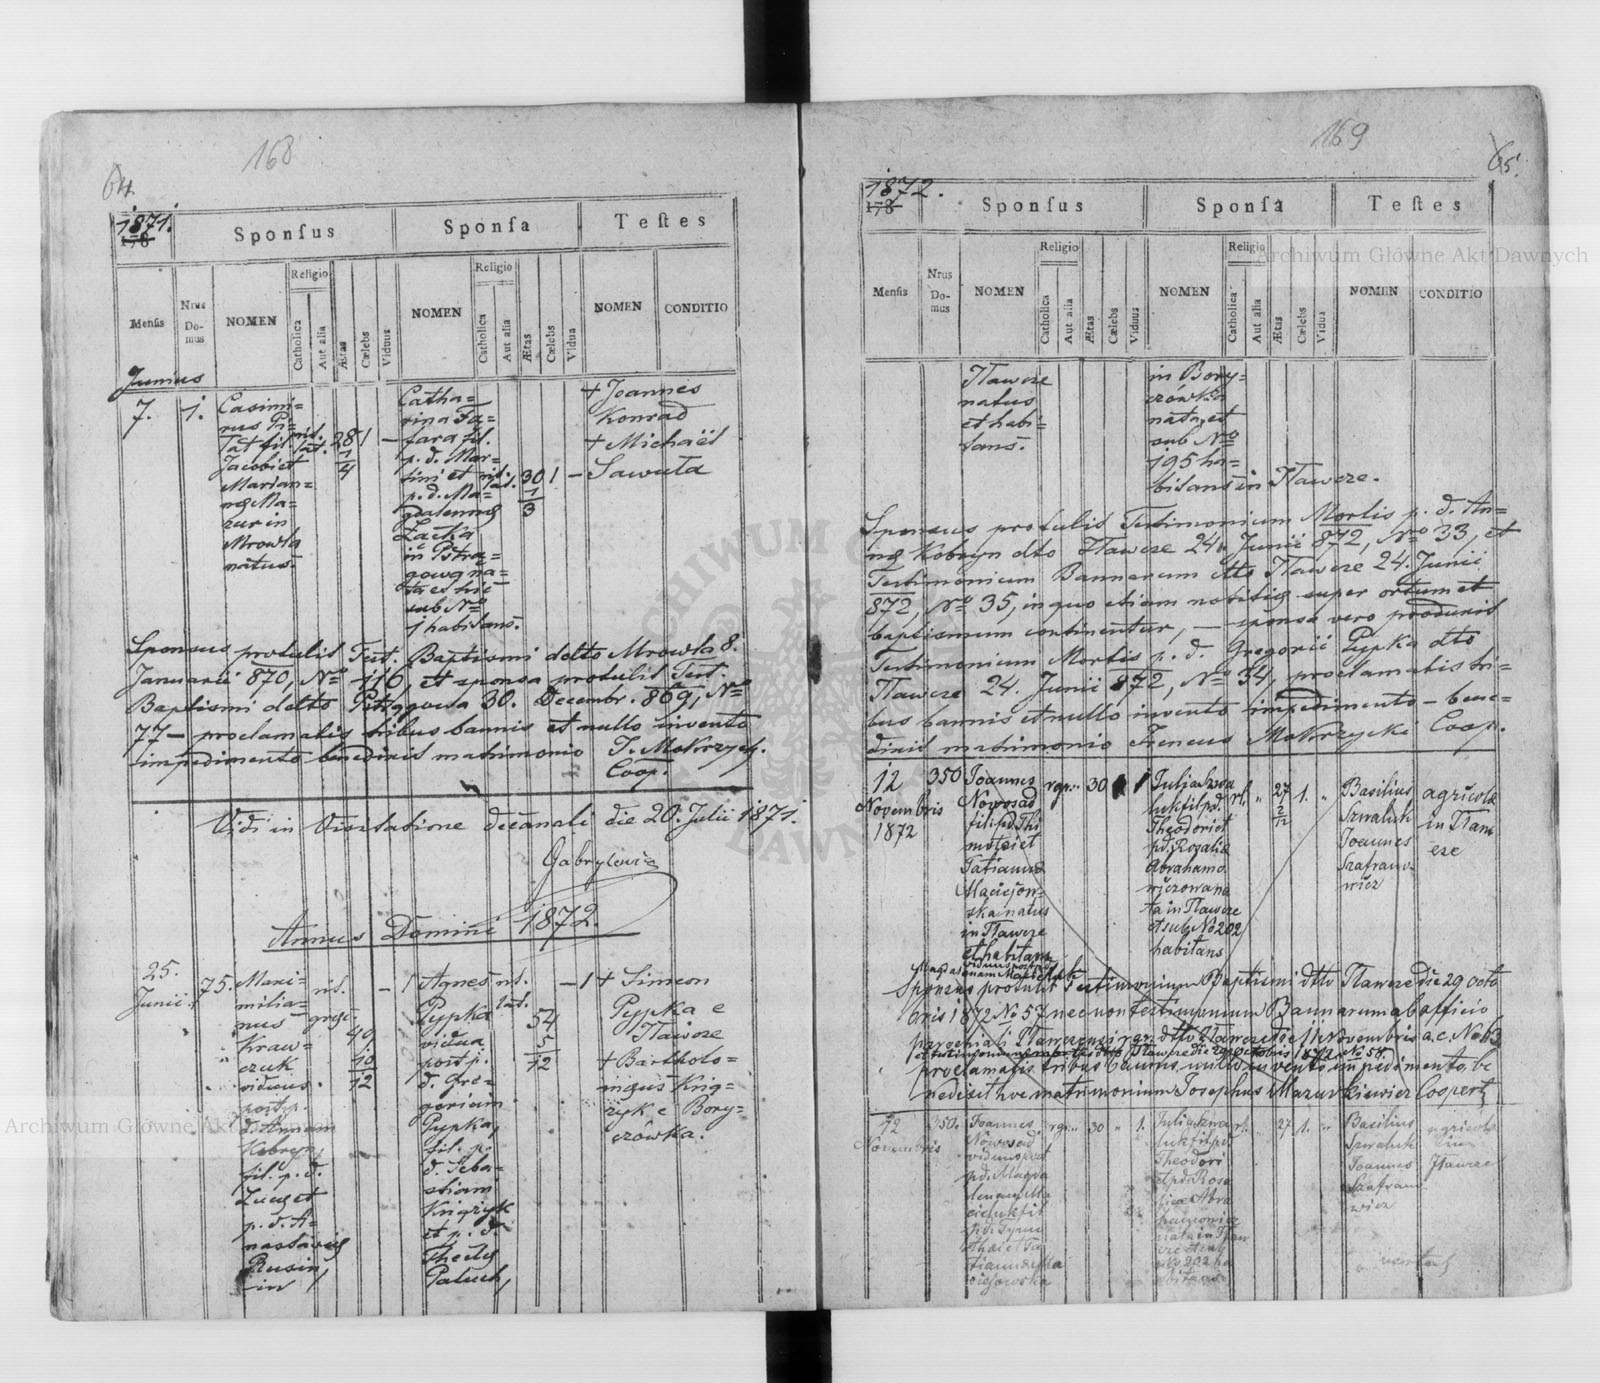 168
64.
1871.
178
Sponſus
Sponſa
Teſtes
Menſis
Nrus Domus
NOMEN
Religio
Catholica
Aut alia
Ætas
Cœlebs
Viduus
NOMEN
Religio
Catholica
Aut alia
Ætas
Cœlebs
Vidua
NOMEN
CONDITIO
Junius
7.
1.
Casimi=
rus Pi=
tat fil.
Jacobi et
Marian=
næ Ma=
zur in
Mrowla
natus.
rit. lat.
28 1/4
1
–
Catha=
rina Fa=
fara fil.
p. d. Mar=
tini et
p. d. Ma=
gdalenæ
Łącka
in Pstrą=
gowa na=
ta et hic
sub Nro
1 habitans.
rit. lat.
30 1/3
1
–
+ Joannes
Konrad
+ Michaël
Sawuła
Sponsus protulit Test. Baptismi ddto Mrowla 8.
Januarii 870, Nro 116, et sponsa protulit Test.
Baptismi ddto Pstrągowa 30. Decembr. 869, Nro
77 – proclamatis tribus bannis et nullo invento
impedimento benedixit matrimonio J. Mokrzycki.
Coop.
Vidi in Visitatione decanali die 20. Julii 1871.
Gabrylewicz
Annus Domini 1872.
25.
Junii
75.
Maxi=
milia=
nus
Kraw=
czuk
viduus
post p.
d. Annam
Kobryn,
fil. p. d.
Lucæ et
p. d. A=
nastasiæ
Rusin
in
rit.
græc.
49 10/12
– 1
Agnes
Pypka
vidua
post p.
d. Gre=
gorium
Pypka,
fil. p.
d. Seba=
stiani
Księżyk
et p. d.
Theclæ
Paluch,
rit.
lat.
54 5/12
– 1
+ Simeon
Pypka e
Iławcze
+ Bartholo=
mæus Księ=
życk e Bory=
czówka.
169
65.
1872.
178
Sponſus
Sponſa
Teſtes
Menſis
Nrus Domus
NOMEN
Religio
Catholica
Aut alia
Ætas
Cælebs
Viduus
NOMEN
Religio
Catholica
Aut alia
Ætas
Cælebs
Vidua
NOMEN
CONDITIO
Iławcze
natus
et habi=
tans.
in Bory=
czówka
nata, et
sub Nro
195 ha=
bitans in Iławcze.
Sponsus protulit Testimonium Mortis p. d. An=
næ Kobryn dto Iławcze 24. Junii 872, Nro 33, et
Testimonium Bannorum dto Iławcze 24. Junii
872, Nro 35, in quo etiam notitia super ortum et
baptismum continentur, – sponsa vero produxit
Testimonium Mortis p. d. Gregorii Pypka dto
Iławcze 24. Junii 872, Nro 34, proclamatis tri=
bus bannis et nullo invento impedimento – bene=
dixit matrimonio Ireneus Mokrzycki Coop.
12
Novembris
1872
350
Joannes
Nowosad
fil. pd. Thi
motei et
Tatianna
Maciejow-
ska natus
in Iławcze
et habitans
rgr.
30
1
Julia
fil. pd.
Theodori et
pd. Rozalia
Abrahamo
wiczow na
ta in Iławcze
et sub No 202
habitans
rl.
27 2/12
1.
Basilius
Szwaluk
Joannes
Szafrano-
wicz
agricolæ
in Iław
cze
Sponsus protulit Testimonium Baptismi dtto Iławcze die 29 octo
bris 1872 No 57 nec non testimonium Bannorum ab officio
parochiali Iławczensi r. gr. dtto Iławcze die 11 Novembris a. c. No 63
proclamatis tribus bannis, nullo invento impedimento, be
nedixit hve matrimonium Josephus Mazurkiewicz Coopert.
12
Novembris
350.
Joannes
Nowosad
viduus post
pd. Magda
lenam Ma
fil
pd. Tymo
thai et Ta
tianna Ma
ciejowska
rgr.
30
1.
Julia
fil. pd
Theodori
et pd. Rosa
liæ Abra
hamowicz
nata in Iław
cze et sub
No 202 ha
bitans
rl.
27
1.
Basilius
Szwaluk
Joannes
Szafrano
wicz
agricolæ
in
Iławcze
Archiwum Główne Akt Dawnych
Archiwum Główne Akt Dawnych